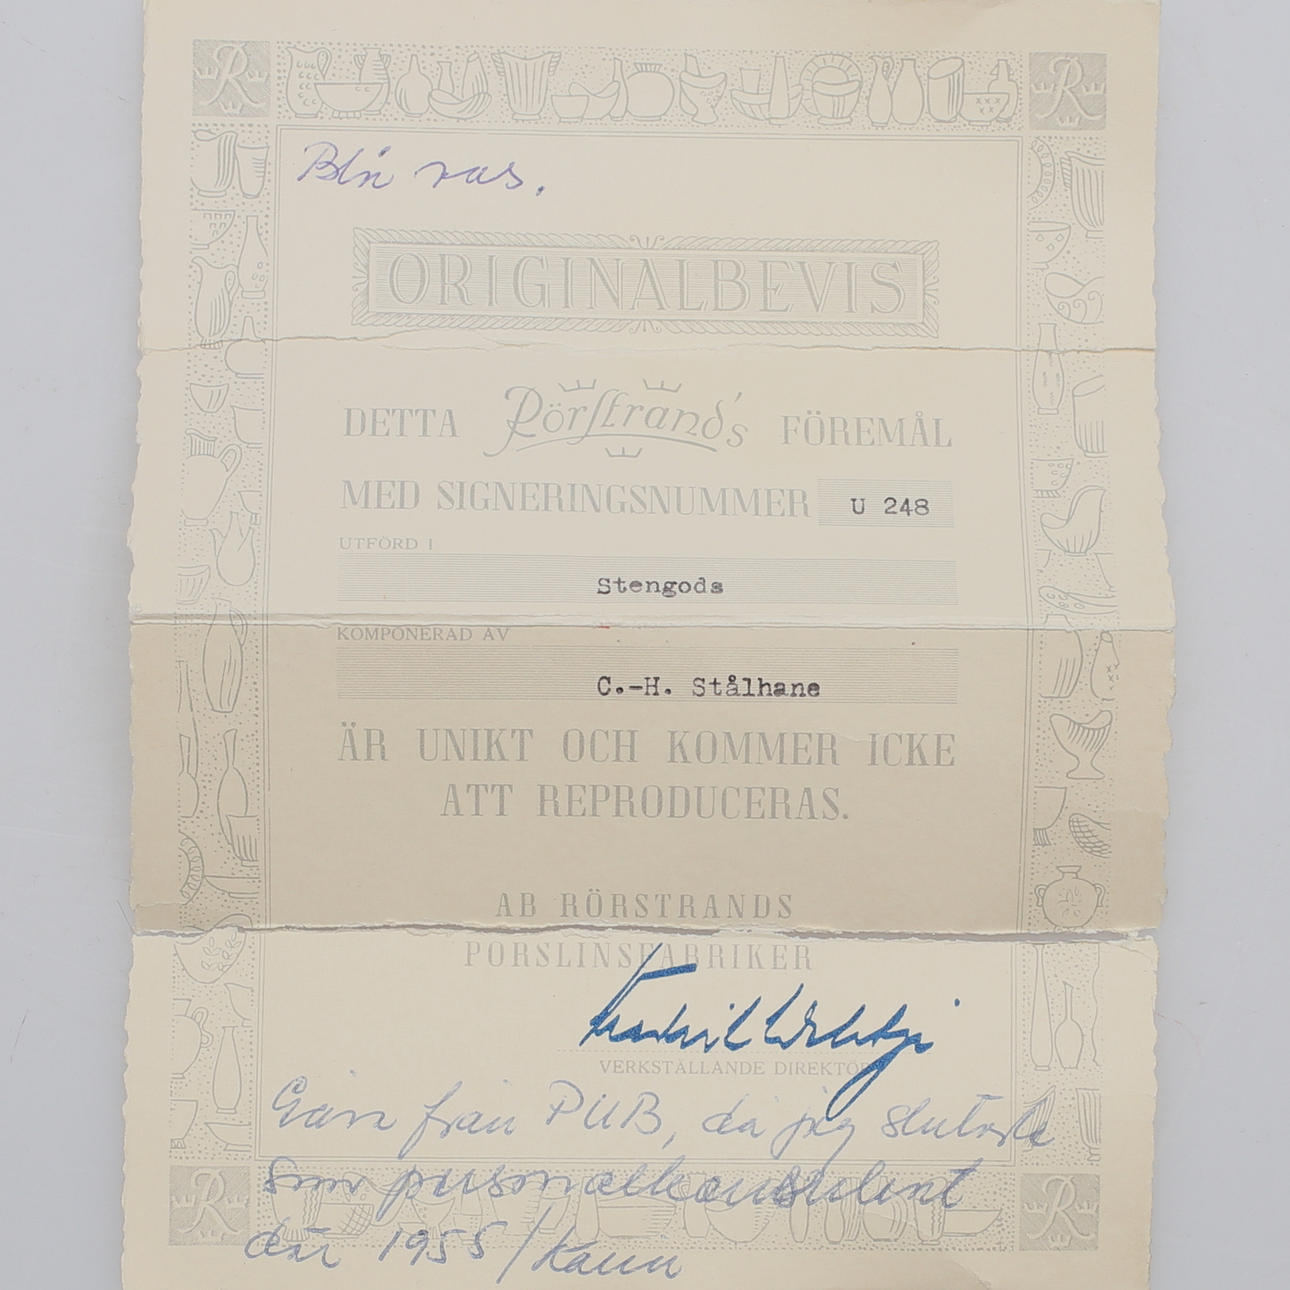 Blå vas.
ORIGINALBEVIS
DETTA Rörstrand's FÖREMÅL
MED SIGNERINGSNUMMER U 248
UTFÖRD I
Stengods
KOMPONERAD AV
C.-H. Stålhane
ÄR UNIKT OCH KOMMER ICKE
ATT REPRODUCERAS.
AB RÖRSTRANDS
PORSLINSFABRIKER
VERKSTÄLLANDE DIREKTÖR
Gåva från PUB, då jag slutade
som personalkonsulent
där 1955 /